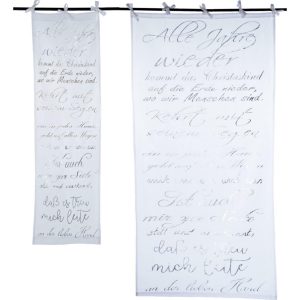 Alle Jahre
wieder
kommt das Christuskind
auf die Erde nieder,
wo wir Menschen sind.
Kehrt mit
seinem Segen
ein in jedes Haus
geht auf allen Wegen
Ist auch
mir zur Seite
still und unerkannt,
daß es treu
mich leite
an der lieben Hand
Alle Jahre
wieder
kommt das Christuskind
auf die Erde nieder,
wo wir Menschen sind.
Kehrt mit
seinem Segen
ein in jedes Haus
geht auf allen Wegen
Ist auch
mir zur Seite
still und unerkannt
daß es treu
mich leite
an der lieben Hand